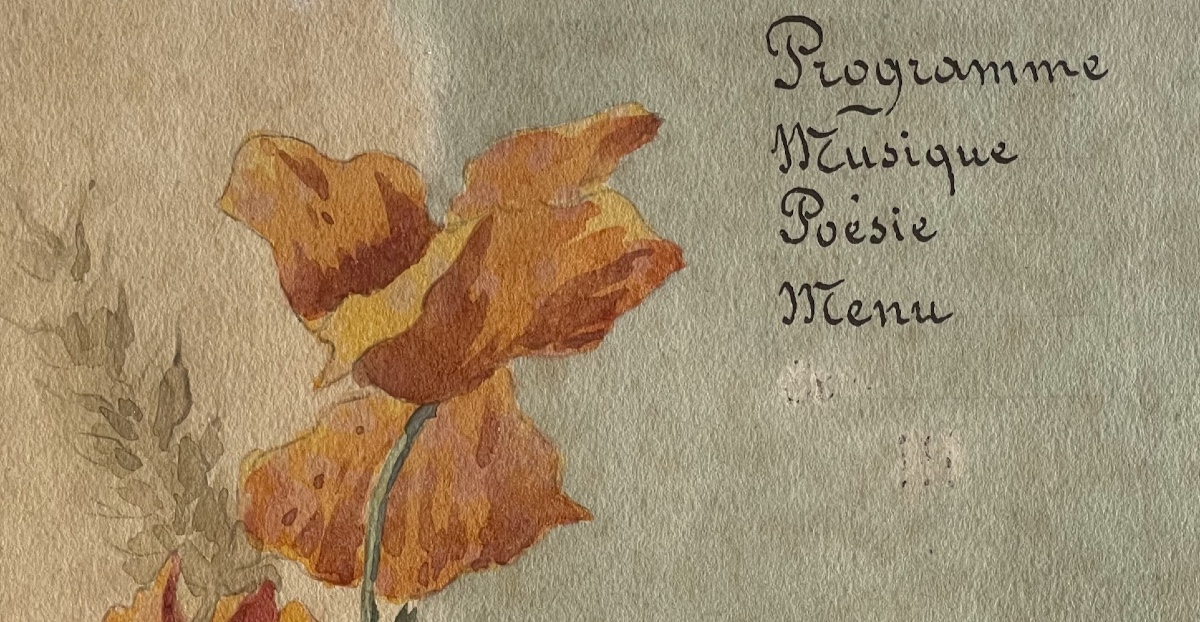 Programme
Musique
Poésie
Menu